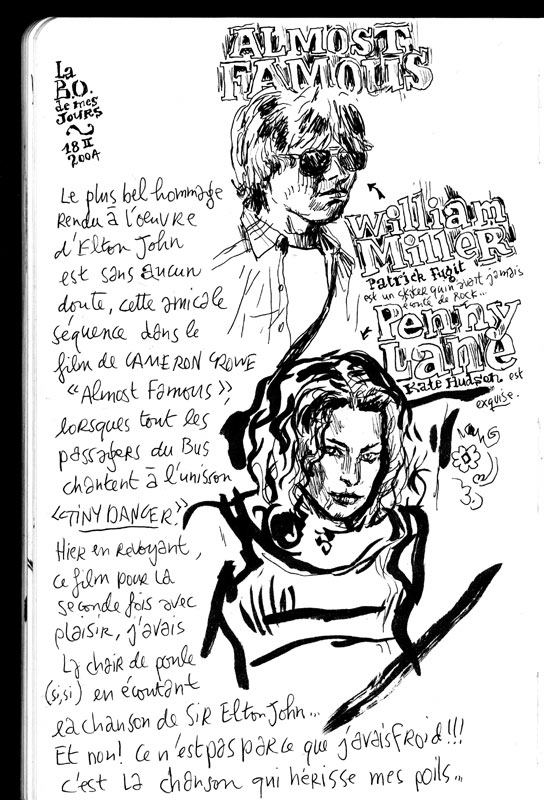 ALMOST
FAMOUS
La
B.O.
de mes
JOURS
18 II
2004
Le plus bel hommage
Rendu à l'oeuvre
d'Elton John
est sans aucun
doute, cette amicale
séquence dans le
film de CAMERON CROWE
"Almost Famous",
lorsques tout les
passagers du Bus
chantent à l'unisson
"TINY DANCER."
Hier en revoyant,
ce film pour la
seconde fois avec
plaisir, j'avais
la chair de poule
(si, si) en écoutant
la chanson de Sir Elton John...
Et non! Ce n'est pas parce que j'avais froid!!!
c'est La chanson qui hérisse mes poils...
William
Miller
Patrick Fugit
est un skater qui n'avait jamais
écouté de Rock...
Penny
Lane
Kate Hudson est
exquise.